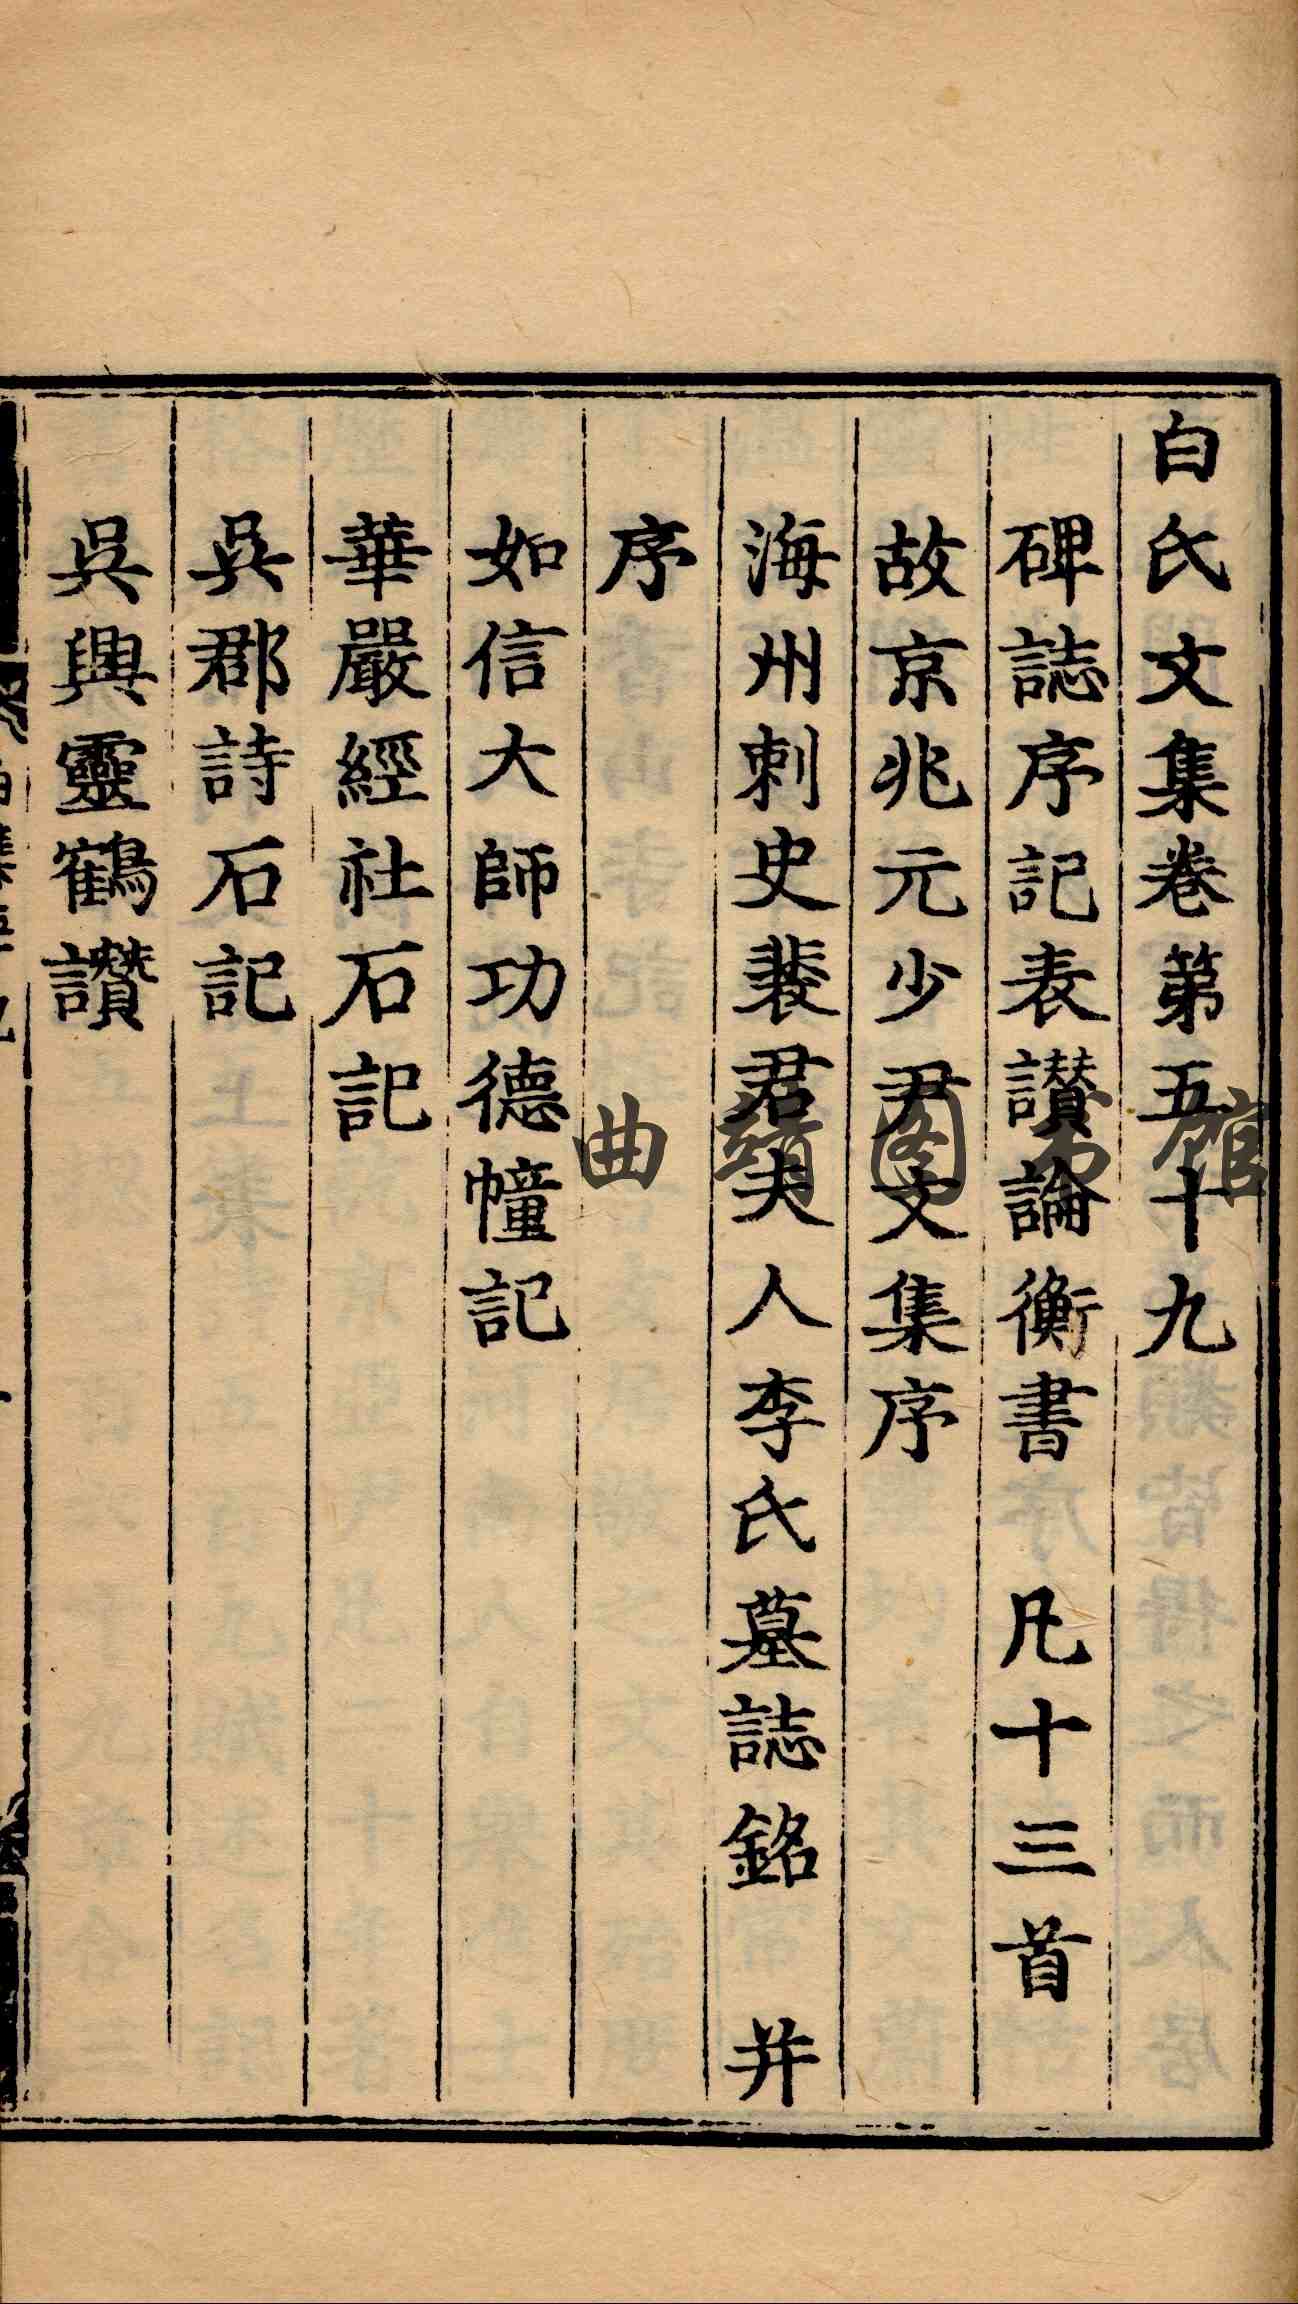 白氏文集卷第五十九
碑誌序記表讃論衡書 凡十三首
故京兆元少尹文集序
海州刺史裴君夫人李氏墓誌銘 并
序
如信大師功德幢記
華嚴經社石記
吳郡詩石記
吳興靈鶴讃
曲靖图书馆